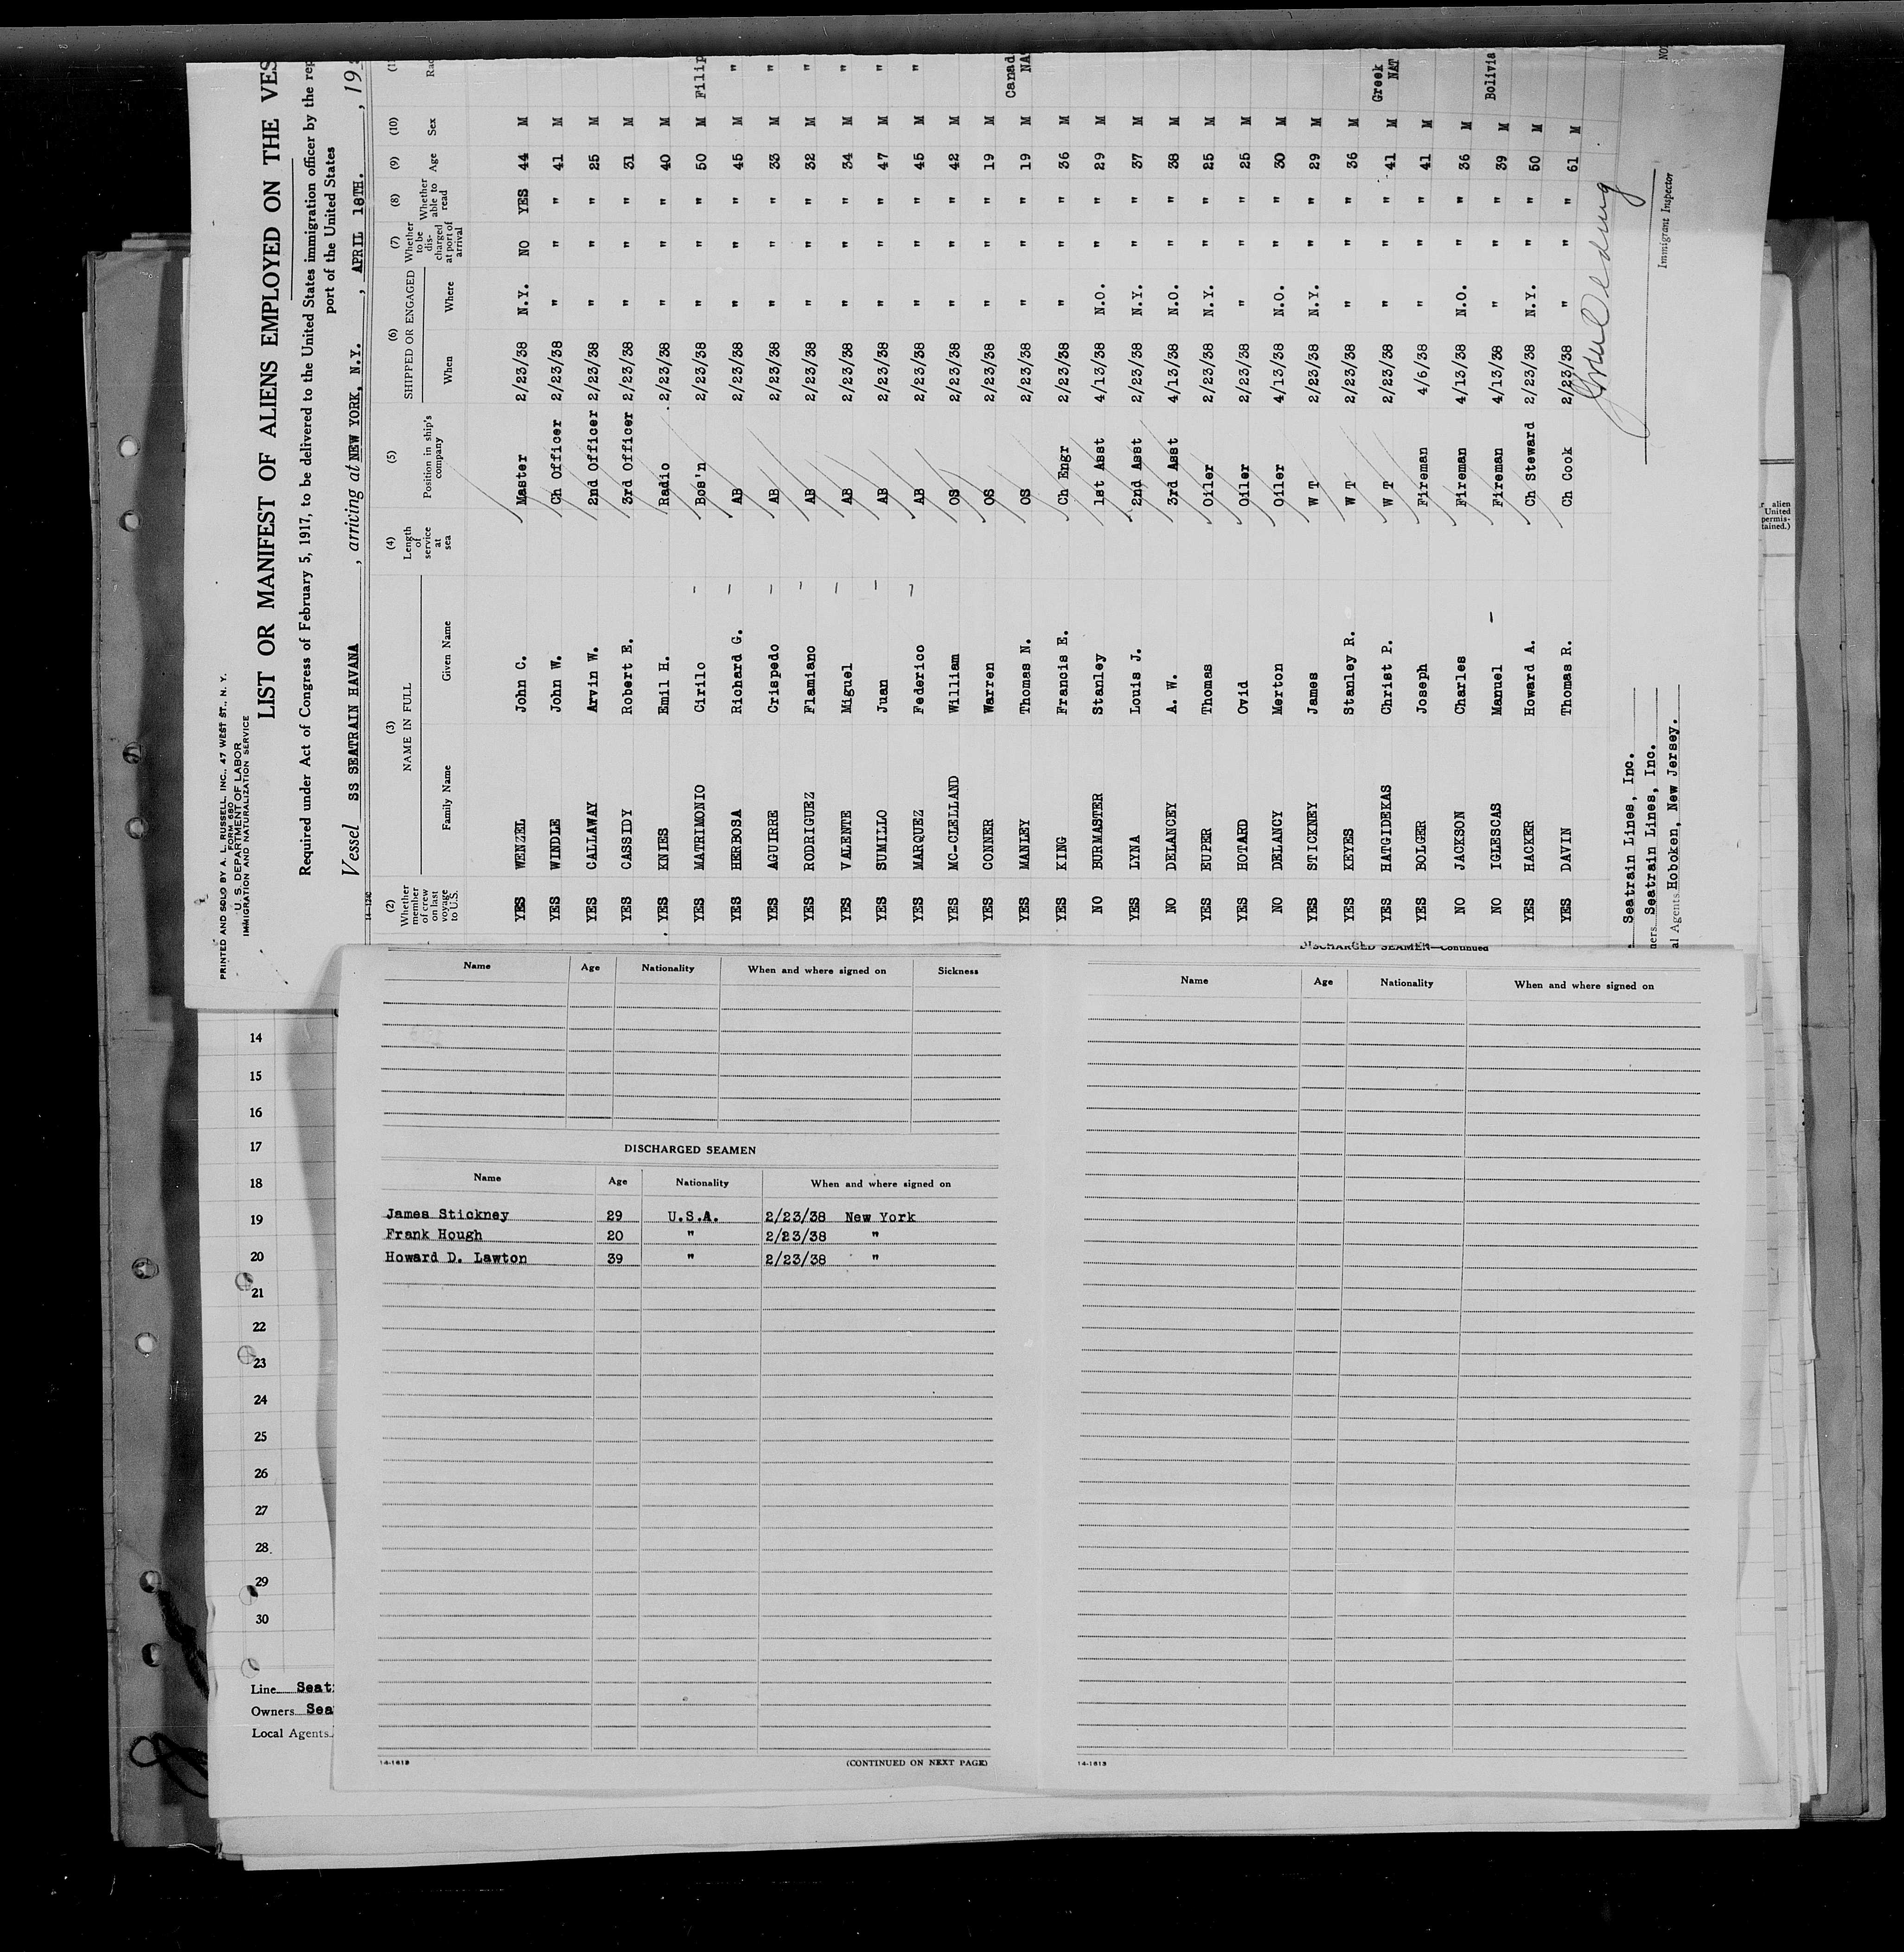 PRINTED AND SOLD BY A. L. RUSSELL, INC., 47 WEST ST., N. Y.
FORM 680
U. S. DEPARTMENT OF LABOR
IMMIGRATION AND NATURALIZATION SERVICE
LIST OR MANIFEST OF ALIENS EMPLOYED ON THE VES
Required under Act of Congress of February 5, 1917, to be delivered to the United States immigration officer by the rep
port of the United States
Vessel SS SEATRAIN HAVANA, arriving at NEW YORK, N.Y., APRIL 18TH., 19
(2) (3) (4) (5) (6) (7) (8) (9) (10)
Whether member of crew on last voyage to U.S. NAME IN FULL Family Name Given Name Length of service at sea Position in ship's company SHIPPED OR ENGAGED When Where Whether to be discharged at port of arrival Whether able to read Age Sex Rac
YES WENZEL John C. Master 2/23/38 N.Y. NO YES 44 M
YES WINDLE John W. Ch Officer 2/23/38 " " " 41 M
YES CALLAWAY Arvin W. 2nd Officer 2/23/38 " " " 25 M
YES CASSIDY Robert E. 3rd Officer 2/23/38 " " " 31 M
YES KNIES Emil H. Radio 2/23/38 " " " 40 M
YES MATRIMONIO Cirilo Bos'n 2/23/38 " " " 50 M Filip
YES HERBOSA Richard G. AB 2/23/38 " " " 45 M "
YES AGUIRRE Crispedo AB 2/23/38 " " " 33 M "
YES RODRIGUEZ Flamiano AB 2/23/38 " " " 32 M "
YES VALENTE Miguel AB 2/23/38 " " " 34 M "
YES SUMILLO Juan AB 2/23/38 " " " 47 M "
YES MARQUEZ Federico AB 2/23/38 " " " 45 M "
YES MC-CLELLAND William OS 2/23/38 " " " 42 M
YES CONNER Warren OS 2/23/38 " " " 19 M
YES MANLEY Thomas N. OS 2/23/38 " " " 19 M Canad NA
YES KING Francis E. Ch Engr 2/23/38 " " " 36 M
NO BURMASTER Stanley 1st Asst 4/13/38 N.O. " " 29 M
YES LYNA Louis J. 2nd Asst 2/23/38 N.Y. " " 37 M
NO DELANCEY A. W. 3rd Asst 4/13/38 N.O. " " 38 M
YES EUPER Thomas Oiler 2/23/38 N.Y. " " 25 M
YES HOTARD Ovid Oiler 2/23/38 " " " 25 M
NO DELANCY Merton Oiler 4/13/38 N.O. " " 30 M
YES STICKNEY James W T 2/23/38 N.Y. " " 29 M
YES KEYES Stanley R. W T 2/23/38 " " " 36 M
YES HATGIDEKAS Christ P. W T 2/23/38 " " " 41 M Greek NAT
YES BOLGER Joseph Fireman 4/6/38 " " " 41 M
NO JACKSON Charles Fireman 4/13/38 N.O. " " 36 M
NO IGLESCAS Manuel Fireman 4/13/38 " " " 39 M Bolivia
YES HACKER Howard A. Ch Steward 2/23/38 N.Y. " " 50 M
YES DAVIN Thomas R. Ch Cook 2/23/38 " " " 61 M
Seatrain Lines, Inc.
ners Seatrain Lines, Inc.
al Agents Hoboken, New Jersey.
Immigrant Inspector
r alien
United
permis-
tained.)
Name Age Nationality When and where signed on Sickness
DISCHARGED SEAMEN
Name Age Nationality When and where signed on
James Stickney 29 U.S.A. 2/23/38 New York
Frank Hough 20 " 2/23/38 "
Howard D. Lawton 39 " 2/23/38 "
14-1613
(CONTINUED ON NEXT PAGE)
DISCHARGED SEAMEN—Continued
Name Age Nationality When and where signed on
14-1613
14
15
16
17
18
19
20
21
22
23
24
25
26
27
28
29
30
Line Seat
Owners Sea
Local Agents